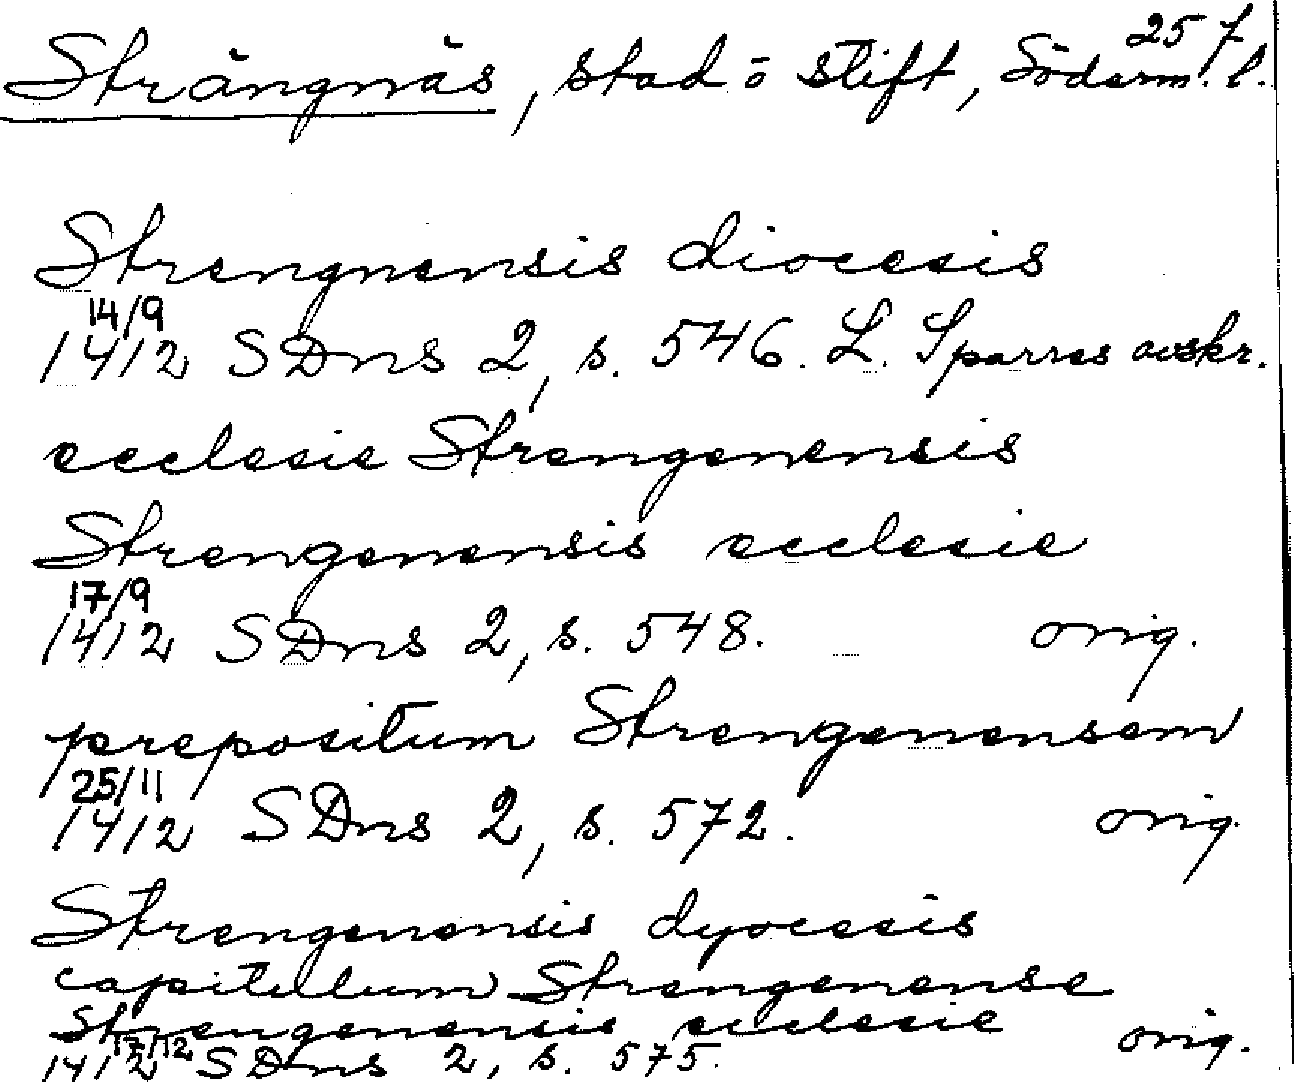 257
Strängnäs, stad o stift, Söderm. l.
Strengnensis diocesis
14/9
1412 SDns 2, s. 546. L. Sparres avskr.
ecclesie Strengenensis
Strengenensis ecclesie
17/9
1412 SDns 2, s. 548. orig.
prepositum Strengenensem
25/11
1412 SDns 2, s. 572. orig.
Strengenensis dyocesis
capitulum Strengenense
Strengenensis ecclesie orig.
17/12
1412 SDns 2, s. 575.